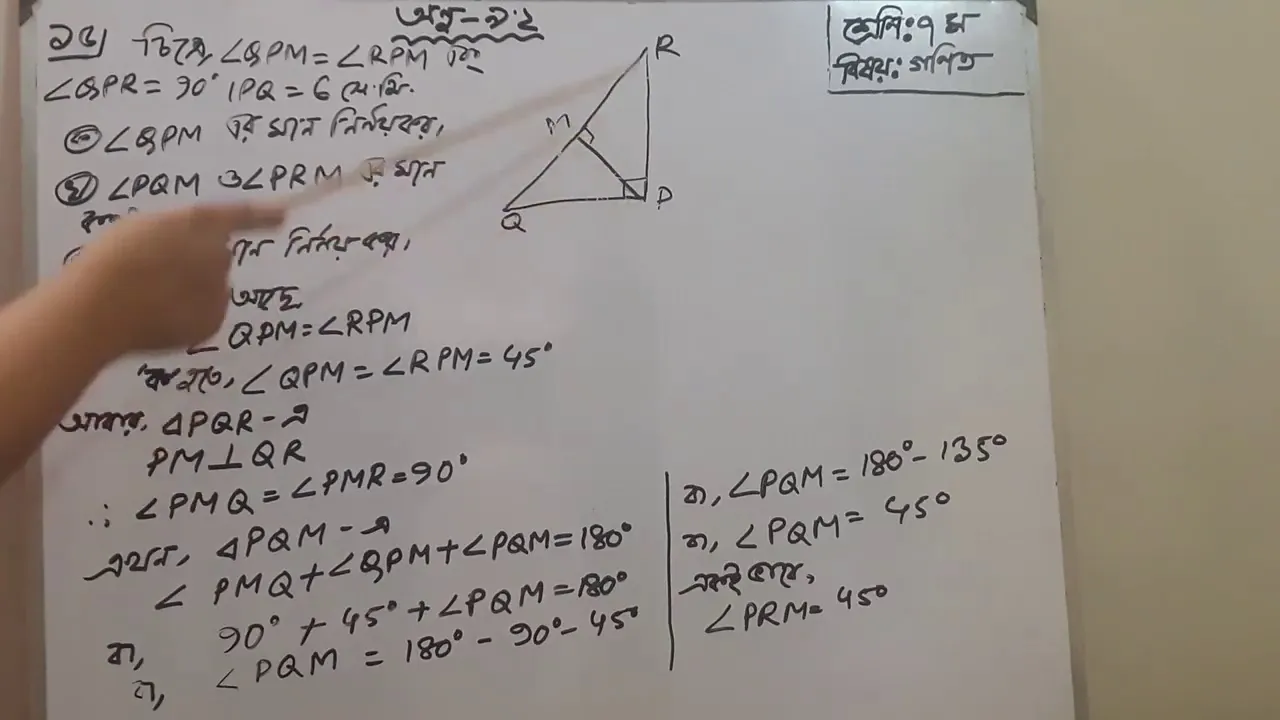 অনু-৯.২
শ্রেণি: ৭ম
বিষয়: গনিত
১৩। চিত্রে, ∠QPM = ∠RPM এবং
∠QPR = 90° । PQ = 6 সে.মি.
ক ∠QPM এর মান নির্ণয় কর,
খ ∠PQM ও ∠PRM এর মান
মান নির্ণয় কর,
আছে
∠QPM = ∠RPM
∠QPM = ∠RPM = 45°
আবার, ΔPQR-এ
PM⊥QR
∴ ∠PMQ = ∠PMR = 90°
এখন, ΔPQM-এ
∠PMQ + ∠QPM + ∠PQM = 180°
বা, 90° + 45° + ∠PQM = 180°
বা, ∠PQM = 180° - 90° - 45°
বা, ∠PQM = 180° - 135°
বা, ∠PQM = 45°
একই ভাবে,
∠PRM = 45°
R
M
P
Q